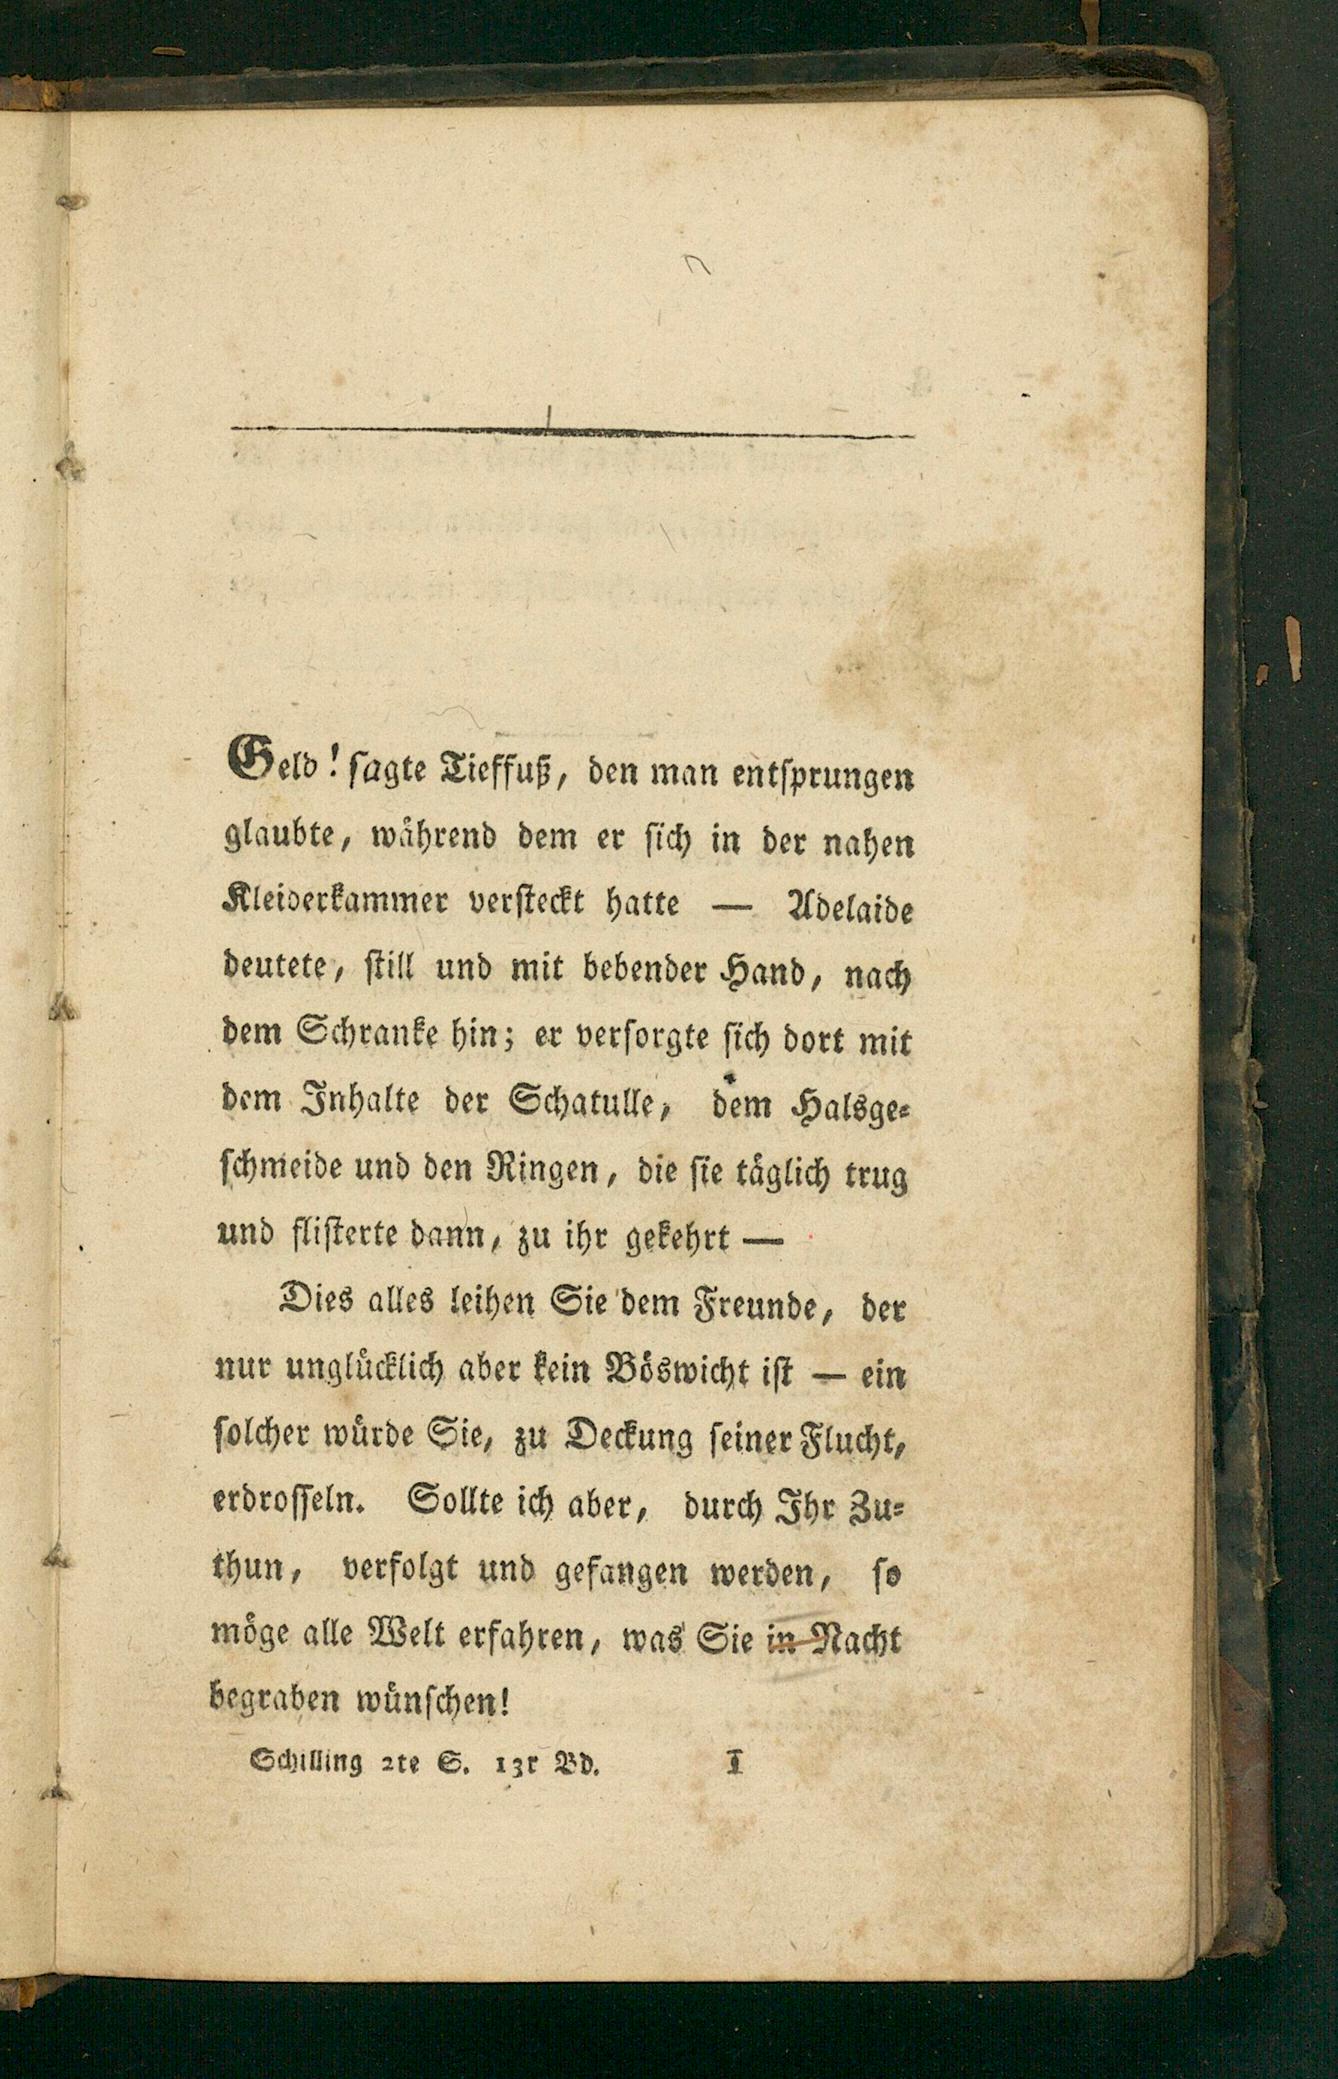 Geld! sagte Tieffuß, den man entsprungen
glaubte, während dem er sich in der nahen
Kleiderkammer versteckt hatte — Adelaide
deutete, still und mit bebender Hand, nach
dem Schranke hin; er versorgte sich dort mit
dem Inhalte der Schatulle, dem Halsge-
schmeide und den Ringen, die sie täglich trug
und flisterte dann, zu ihr gekehrt —
Dies alles leihen Sie dem Freunde, der
nur unglücklich aber kein Böswicht ist — ein
solcher würde Sie, zu Deckung seiner Flucht,
erdrosseln. Sollte ich aber, durch Ihr Zu-
thun, verfolgt und gefangen werden, so
möge alle Welt erfahren, was Sie in Nacht
begraben wünschen!
Schilling 2te S. 13r Bd. I